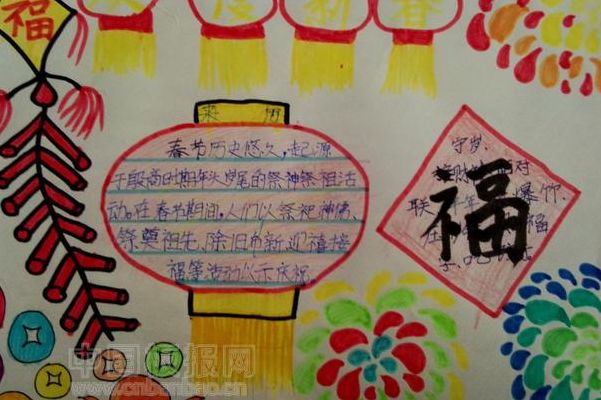 福
庆 新 春
春节历史悠久,起源
于殷商时期年头岁尾的祭神祭祖活
动。在春节期间,人们以祭祀神佛、
祭奠祖先、除旧布新、迎禧接
福等活动以示庆祝
守岁、
对
联 年 爆竹、
福
福
中国 报网
www.cnbanbao.cn